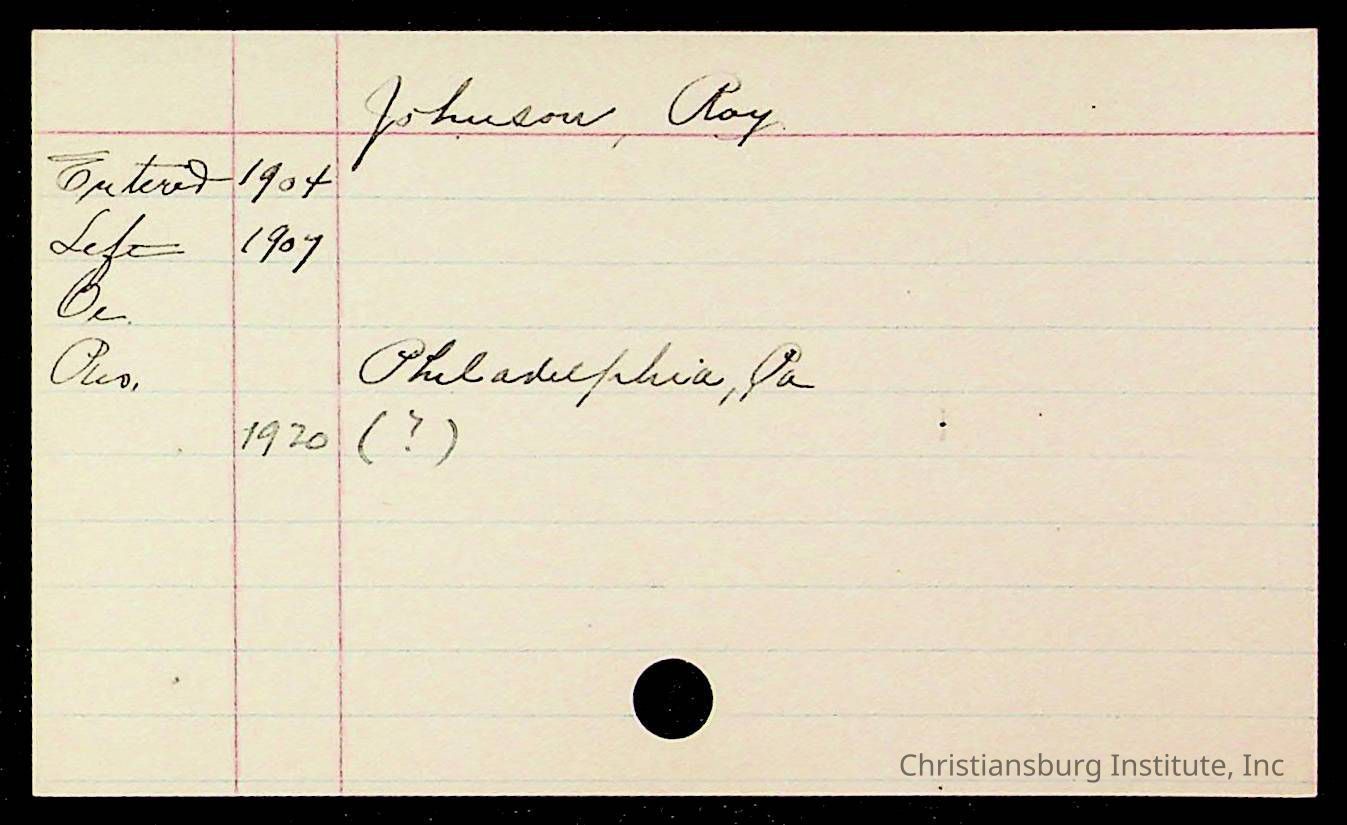 Johnson, Roy
Entered 1904
Left 1907
Oc.
Res. Philadelphia, Pa
1920 (?)
Christiansburg Institute, Inc